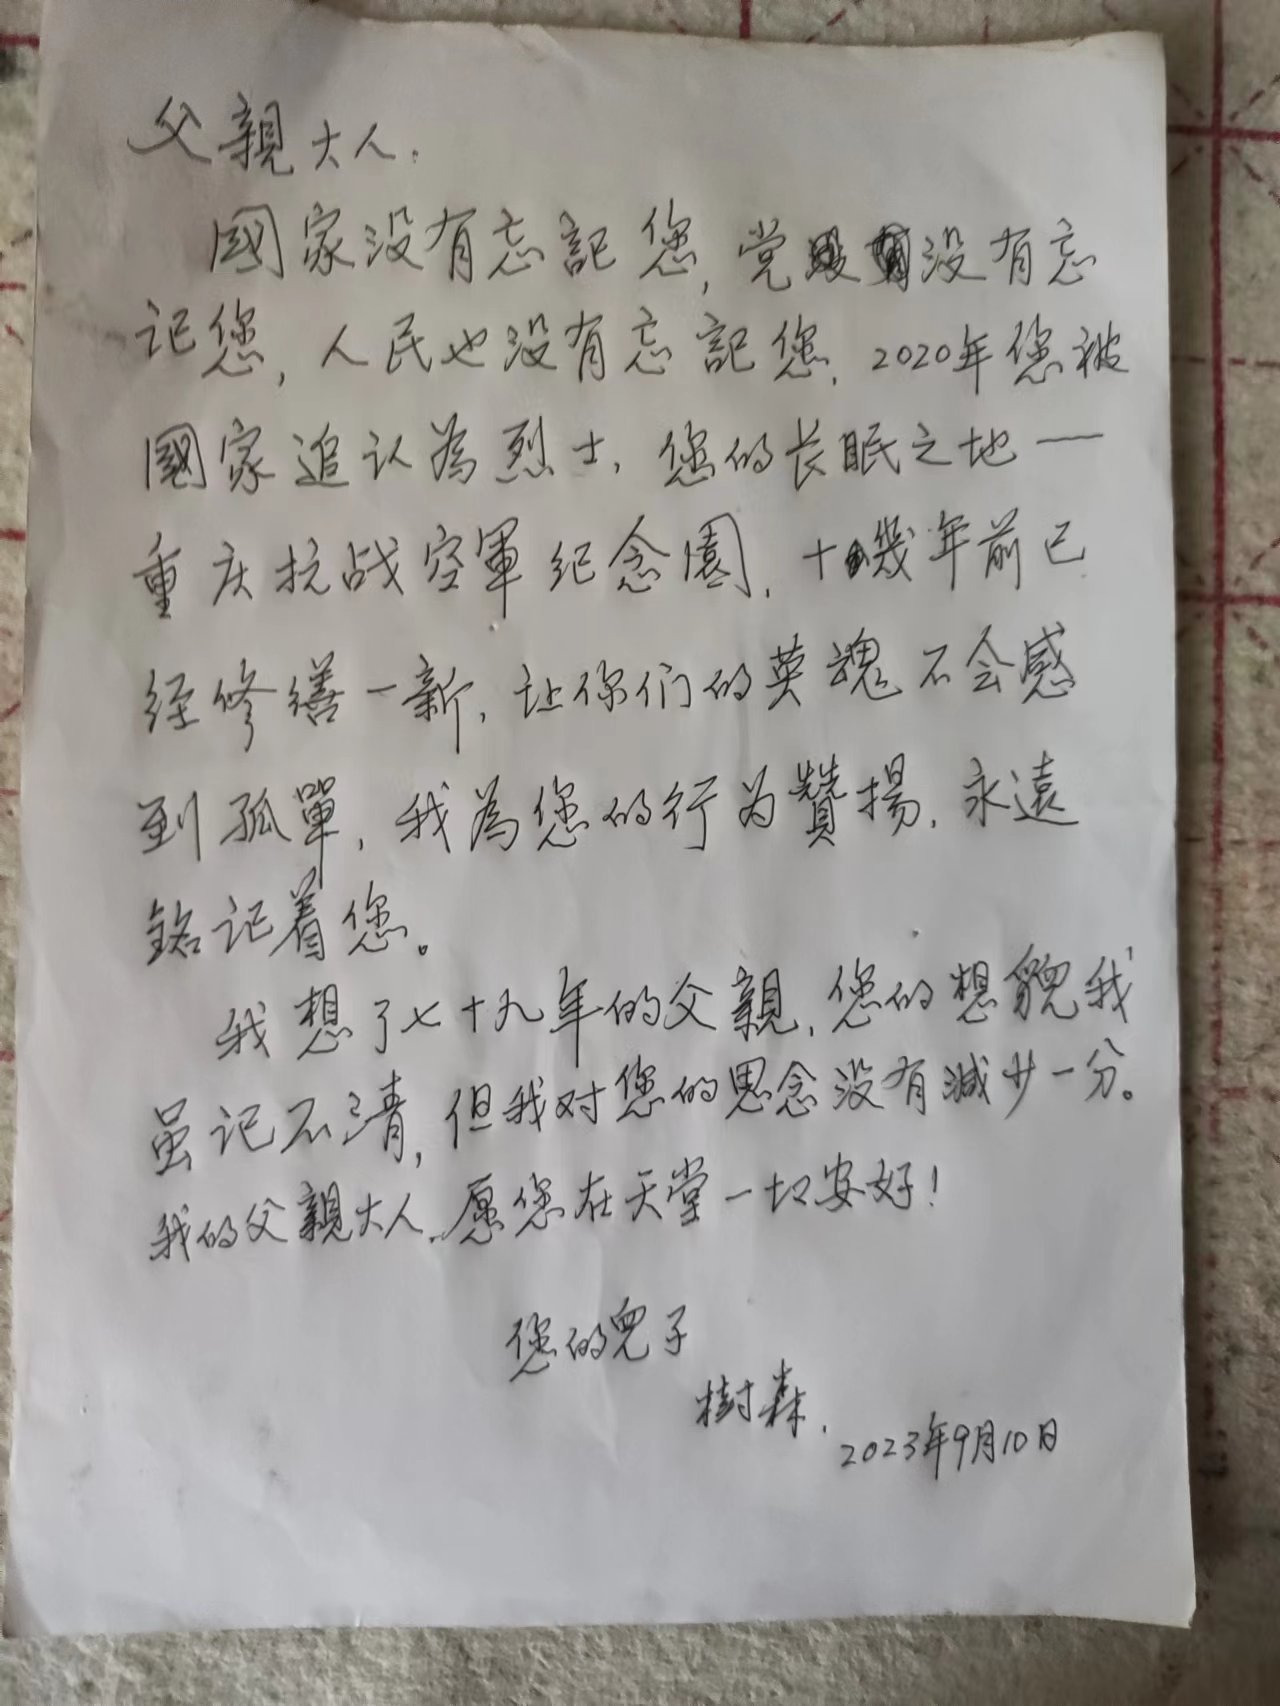 父親大人.
國家没有忘記您,党没有忘
记您,人民也没有忘記您.2020年您被
國家追认為烈士,您的长眠之地——
重庆抗战空軍纪念園,十幾年前已
经修缮一新,让你们的英魂不会感
到孤單,我為您的行为赞揚,永遠
銘记着您。
我想了七十九年的父親,您的想貌我
虽记不清,但我对您的思念没有減少一分。
我的父親大人,愿您在天堂一切安好!
您的兒子
樹森.
2023年9月10日